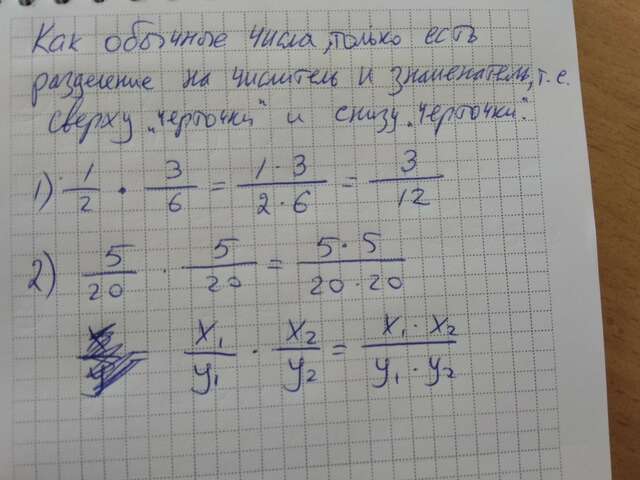 Как обычные числа, только есть
разделение на числитель и знаменатель, т.е.
сверху „черточки" и снизу „черточки".
1) 1/2 · 3/6 = 1·3/2·6 = 3/12
2) 5/20 · 5/20 = 5·5/20·20
x₁/y₁ · x₂/y₂ = x₁·x₂/y₁·y₂